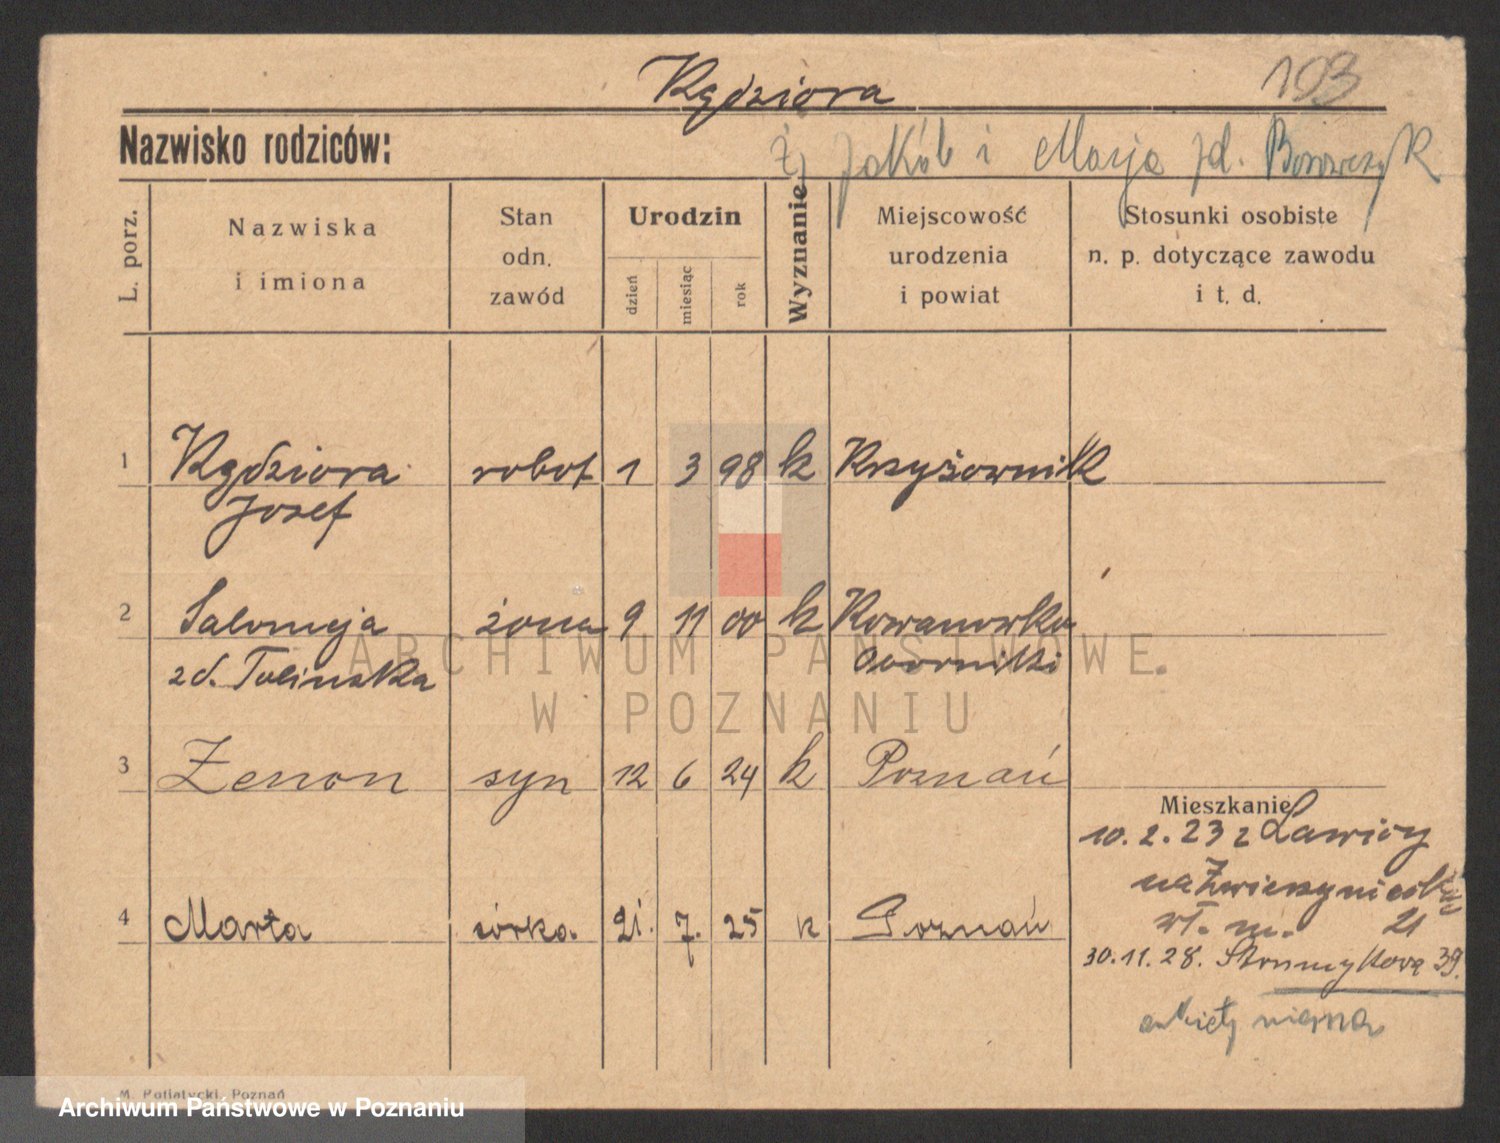 Kędziora
193
Nazwisko rodziców:
Jakób i Marja zd. Borowczyk
L. porz.
Nazwiska
i imiona
Stan
odn.
zawód
Urodzin
dzień
miesiąc
rok
Wyznanie
Miejscowość
urodzenia
i powiat
Stosunki osobiste
n. p. dotyczące zawodu
i t. d.
1 Kędziora robot 1 3 98 k Krzyżownik
Józef
2 Salomeja żona 9 11 00 k Kowanowko
zd. Tulinska Oborniki
3 Zenon syn 12 6 24 k Poznań
Mieszkanie
10.2.23 z Ławicy
na Zwierzyniecką
wł. m. 21
4 Marta córka. 21. 7. 25 k Poznań
30.11.28. Strumykową 39.
ARCHIWUM PAŃSTWOWE
W POZNANIU
Poznań
Archiwum Państwowe w Poznaniu